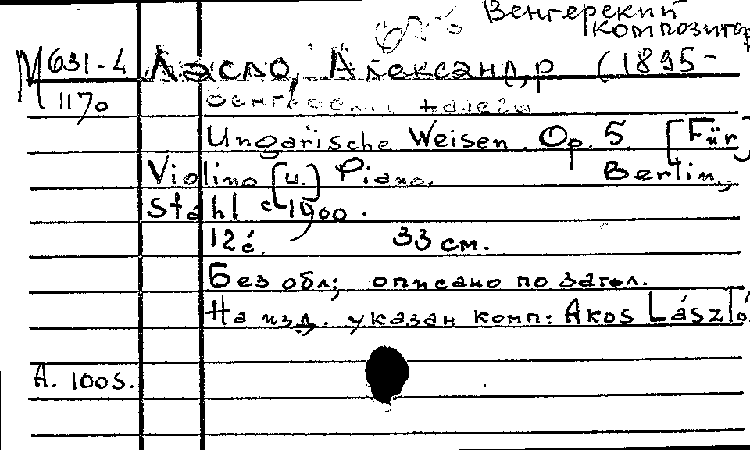 Венгерский
композитор
М 631-4 Ласло, Александр (1895-
1170
Ungarische Weisen. Op. 5 [Für]
Violino [u.] Piano. Berlin,
Stahl c 1900.
12 с. 33 см.
Без обл; описано по загол.
На изд. указан комп: Akos László.
A. 1005.